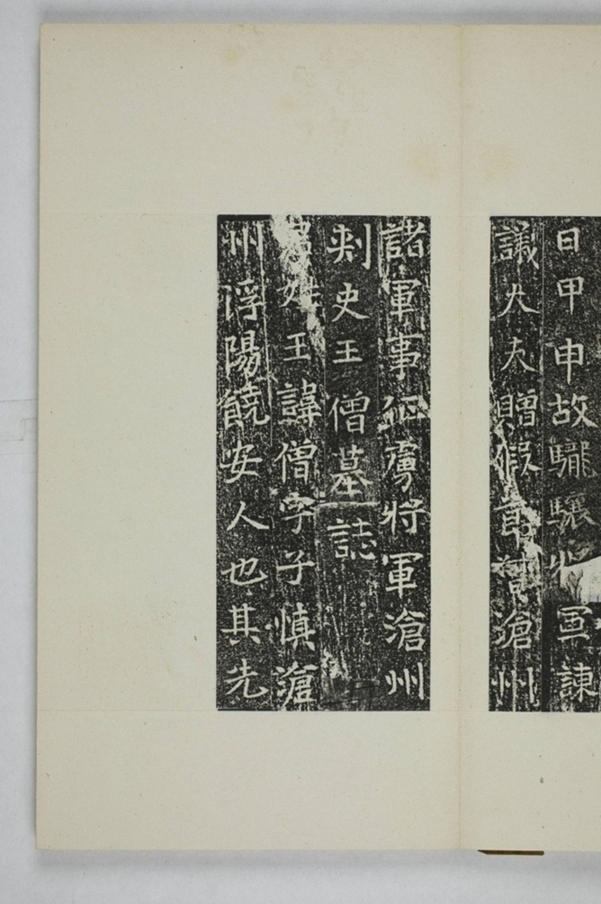 日甲申故驤驤將軍諫
議大夫贈假節督滄州
諸軍事征虜將軍滄州
刺史王僧墓誌
君姓王諱僧字子慎滄
州浮陽饒安人也其先